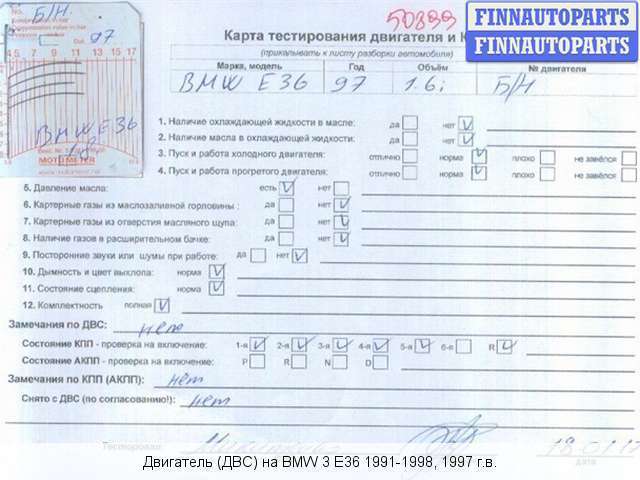 50899
FINNAUTOPARTS
FINNAUTOPARTS
No. Б/Н.
97
4,5 7 9 11 13 15 17
BMW E36
1.6
MOTOMETER
Карта тестирования двигателя и К
(прикалывать к листу разборки автомобиля)
Марка, модель Год Объём № двигателя
BMW E36 97 1.6i Б/Н
1. Наличие охлаждающей жидкости в масле: да нет V
2. Наличие масла в охлаждающей жидкости: да нет V
3. Пуск и работа холодного двигателя: отлично норма V плохо не завёлся
4. Пуск и работа прогретого двигателя: отлично норма V плохо не завёлся
5. Давление масла: есть V нет
6. Картерные газы из маслозаливной горловины : да нет V
7. Картерные газы из отверстия масляного щупа: да нет V
8. Наличие газов в расширительном бачке: да нет V
9. Посторонние звуки или шумы при работе: да нет V
10. Дымность и цвет выхлопа: норма V
11. Состояние сцепления: норма V
12. Комплектность полная V
Замечания по ДВС: нет
Состояние КПП - проверка на включение: 1-я V 2-я V 3-я V 4-я V 5-я V 6-я R V
Состояние АКПП - проверка на включение: P R N D
Замечания по КПП (АКПП): нет
Снято с ДВС (по согласованию!): нет
Тестировал
дата
Двигатель (ДВС) на BMW 3 E36 1991-1998, 1997 г.в.